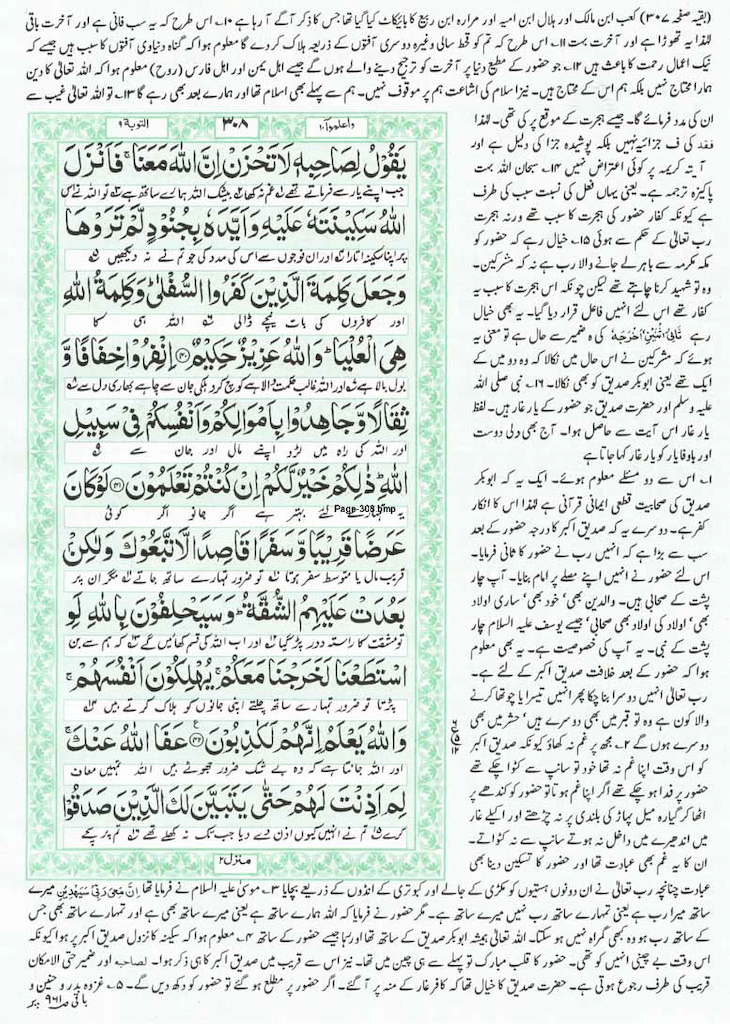 (بقیہ صفحہ ۳۰۷) کعب ابن مالک اور ہلال ابن امیہ اور مرارہ ابن ربیع کا بائیکاٹ کیا گیا تھا جس کا ذکر آگے آ رہا ہے ۱۰۔ اس طرح کہ یہ سب فانی ہے اور آخرت باقی
لہٰذا یہ تھوڑا ہے اور آخرت بہت ۱۱۔ اس طرح کہ تم کو قحط سالی وغیرہ دوسری آفتوں کے ذریعہ ہلاک کر دے گا معلوم ہوا کہ گناہ دنیاوی آفتوں کا سبب ہیں جیسے کہ
نیک اعمال رحمت کا باعث ہیں ۱۲۔ جو حضور کے مطیع دنیا پر آخرت کو ترجیح دینے والے ہوں گے جیسے اہل یمن اور اہل فارس (روح) معلوم ہوا کہ اللہ تعالیٰ کا دین
ہمارا محتاج نہیں بلکہ ہم اس کے محتاج ہیں۔ نیز اسلام کی اشاعت ہم پر موقوف نہیں۔ ہم سے پہلے بھی اسلام تھا اور ہمارے بعد بھی رہے گا ۱۳۔ تو اللہ تعالیٰ غیب سے
ان کی مدد فرمائے گا۔ جیسے ہجرت کے موقع پر کی تھی۔ لہٰذا
فقد کی ف جزائیہ نہیں بلکہ پوشیدہ جزا کی دلیل ہے اور
آیۃ کریمہ پر کوئی اعتراض نہیں ۱۴۔ سبحان اللہ بہت
پاکیزہ ترجمہ ہے۔ یعنی یہاں فعل کی نسبت سبب کی طرف
ہے کیونکہ کفار حضور کی ہجرت کا سبب تھے ورنہ ہجرت
رب تعالیٰ کے حکم سے ہوئی ۱۵۔ خیال رہے کہ حضور کو
مکہ مکرمہ سے باہر لے جانے والا رب ہے نہ کہ مشرکین۔
وہ تو شہید کرنا چاہتے تھے لیکن چونکہ اس ہجرت کا سبب یہ
کفار تھے اس لئے انہیں فاعل قرار دیا گیا۔ یہ بھی خیال
رہے ثَانِیَ اثْنَیْنِ اَخْرَجَہٗ کی ہ ضمیر سے حال ہے تو معنی یہ
ہوئے کہ مشرکین نے اس حال میں نکالا کہ وہ دو میں کے
ایک تھے یعنی ابوبکر صدیق کو بھی نکالا۔ ۱۶۔ نبی صلی اللہ
علیہ وسلم اور حضرت صدیق جو حضور کے یار غار ہیں۔ لفظ
یار غار اس آیت سے حاصل ہوا۔ آج بھی دلی دوست
اور باوفا یار کو یار غار کہا جاتا ہے
۱۔ اس سے دو مسئلے معلوم ہوئے۔ ایک یہ کہ ابوبکر
صدیق کی صحابیت قطعی ایمانی قرآنی ہے لہٰذا اس کا انکار
کفر ہے۔ دوسرے یہ کہ صدیق اکبر کا درجہ حضور کے بعد
سب سے بڑا ہے کہ انہیں رب نے حضور کا ثانی فرمایا۔
اس لئے حضور نے انہیں اپنے مصلے پر امام بنایا۔ آپ چار
پشت کے صحابی ہیں۔ والدین بھی‘ خود بھی‘ ساری اولاد
بھی‘ اولاد کی اولاد بھی صحابی‘ جیسے یوسف علیہ السلام چار
پشت کے نبی۔ یہ آپ کی خصوصیت ہے۔ یہ بھی معلوم
ہوا کہ حضور کے بعد خلافت صدیق اکبر کے لئے ہے۔
رب تعالیٰ انہیں دوسرا بنا چکا پھر انہیں تیسرا یا چوتھا کرنے
والا کون ہے وہ تو قبر میں بھی دوسرے ہیں‘ حشر میں بھی
دوسرے ہوں گے ۲۔ مجھ پر غم نہ کھاؤ کیونکہ صدیق اکبر
کو اس وقت اپنا غم نہ تھا خود تو سانپ سے کٹوا چکے تھے
حضور پر فدا ہو چکے تھے اگر اپنا غم ہوتا تو حضور کو کندھے پر
اٹھا کر گیارہ میل پہاڑ کی بلندی پر نہ چڑھتے اور اکیلے غار
میں اندھیرے میں داخل نہ ہوتے سانپ سے نہ کٹواتے۔
ان کا یہ غم بھی عبادت تھا اور حضور کا تسکین دینا بھی
واعلموا ۱۰
۳۰۸
التوبة ۹
يَقُوْلُ لِصَاحِبِهٖ لَا تَحْزَنْ اِنَّ اللّٰهَ مَعَنَا ۚ فَاَنْزَلَ
جب اپنے یار سے فرماتے تھے غم نہ کھا بیشک اللہ ہمارے ساتھ ہے تو اللہ نے اس
اللّٰهُ سَكِيْنَتَهٗ عَلَيْهِ وَاَيَّدَهٗ بِجُنُوْدٍ لَّمْ تَرَوْهَا
پر اپنا سکینہ اتارا اور ان فوجوں سے اس کی مدد کی جو تم نے نہ دیکھیں
وَجَعَلَ كَلِمَةَ الَّذِيْنَ كَفَرُوا السُّفْلٰى ؕ وَكَلِمَةُ اللّٰهِ
اور کافروں کی بات نیچے ڈالی اللہ ہی کا
هِىَ الْعُلْيَا ؕ وَاللّٰهُ عَزِيْزٌ حَكِيْمٌ ﴿۴۰﴾ اِنْفِرُوْا خِفَافًا وَّ
بول بالا ہے اور اللہ غالب حکمت والا ہے کوچ کرو ہلکی جان سے چاہے بھاری دل سے
ثِقَالًا وَّجَاهِدُوْا بِاَمْوَالِكُمْ وَاَنْفُسِكُمْ فِىْ سَبِيْلِ
اور اللہ کی راہ میں لڑو اپنے مال اور جان سے
اللّٰهِ ؕ ذٰلِكُمْ خَيْرٌ لَّكُمْ اِنْ كُنْتُمْ تَعْلَمُوْنَ ﴿۴۱﴾ لَوْ كَانَ
یہ تمہارے لئے بہتر ہے اگر جانو اگر کوئی
Page-308.bmp
عَرَضًا قَرِيْبًا وَّسَفَرًا قَاصِدًا لَّاتَّبَعُوْكَ وَلٰكِنْۢ
قریب مال یا متوسط سفر ہوتا تو ضرور تمہارے ساتھ جاتے مگر ان پر
بَعُدَتْ عَلَيْهِمُ الشُّقَّةُ ؕ وَسَيَحْلِفُوْنَ بِاللّٰهِ لَوِ
تو مشقت کا راستہ دور پڑ گیا اور اب اللہ کی قسم کھائیں گے کہ ہم سے بن
اسْتَطَعْنَا لَخَرَجْنَا مَعَكُمْ ۚ يُهْلِكُوْنَ اَنْفُسَهُمْ ۚ
پڑتا تو ضرور تمہارے ساتھ چلتے اپنی جانوں کو ہلاک کرتے ہیں
وَاللّٰهُ يَعْلَمُ اِنَّهُمْ لَكٰذِبُوْنَ ﴿۴۲﴾ عَفَا اللّٰهُ عَنْكَ ۚ
اور اللہ جانتا ہے کہ وہ بے شک ضرور جھوٹے ہیں اللہ تمہیں معاف
لِمَ اَذِنْتَ لَهُمْ حَتّٰى يَتَبَيَّنَ لَكَ الَّذِيْنَ صَدَقُوْا
کرے تم نے انہیں کیوں اذن دے دیا جب تک نہ کھلے تھے تم پر سچے
منزل ۲
عبادت چنانچہ رب تعالیٰ نے ان دونوں ہستیوں کو مکڑی کے جالے اور کبوتری کے انڈوں کے ذریعے بچایا ۳۔ موسیٰ علیہ السلام نے فرمایا تھا اِنَّ مَعِیَ رَبِّیْ سَیَھْدِیْنِ میرے
ساتھ میرا رب ہے یعنی تمہارے ساتھ رب نہیں میرے ساتھ ہے۔ مگر حضور نے فرمایا کہ اللہ ہمارے ساتھ ہے یعنی میرے ساتھ بھی ہے اور تمہارے ساتھ بھی جس
کے ساتھ رب ہو وہ کبھی گمراہ نہیں ہو سکتا۔ اللہ تعالیٰ ہمیشہ ابوبکر صدیق کے ساتھ تھا اور رہا جیسے حضور کے ساتھ ۴۔ معلوم ہوا کہ سکینہ کا نزول صدیق اکبر پر ہوا کیونکہ
اس وقت بے چینی انہیں کو تھی۔ حضور کا قلب مبارک تو پہلے سے ہی چین میں تھا۔ نیز اس سے قریب میں صدیق اکبر کا ہی ذکر ہوا۔ لصاحبہ اور ضمیر حتی الامکان
قریب کی طرف رجوع ہوتی ہے۔ حضرت صدیق کا خیال تھا کہ کافر غار کے منہ پر آ گئے۔ اگر حضور پر مطلع ہو گئے تو حضور کو دکھ دیں گے۔ ۵۔ غزوہ بدر و حنین و
باقی ص ۹۶۱ پر